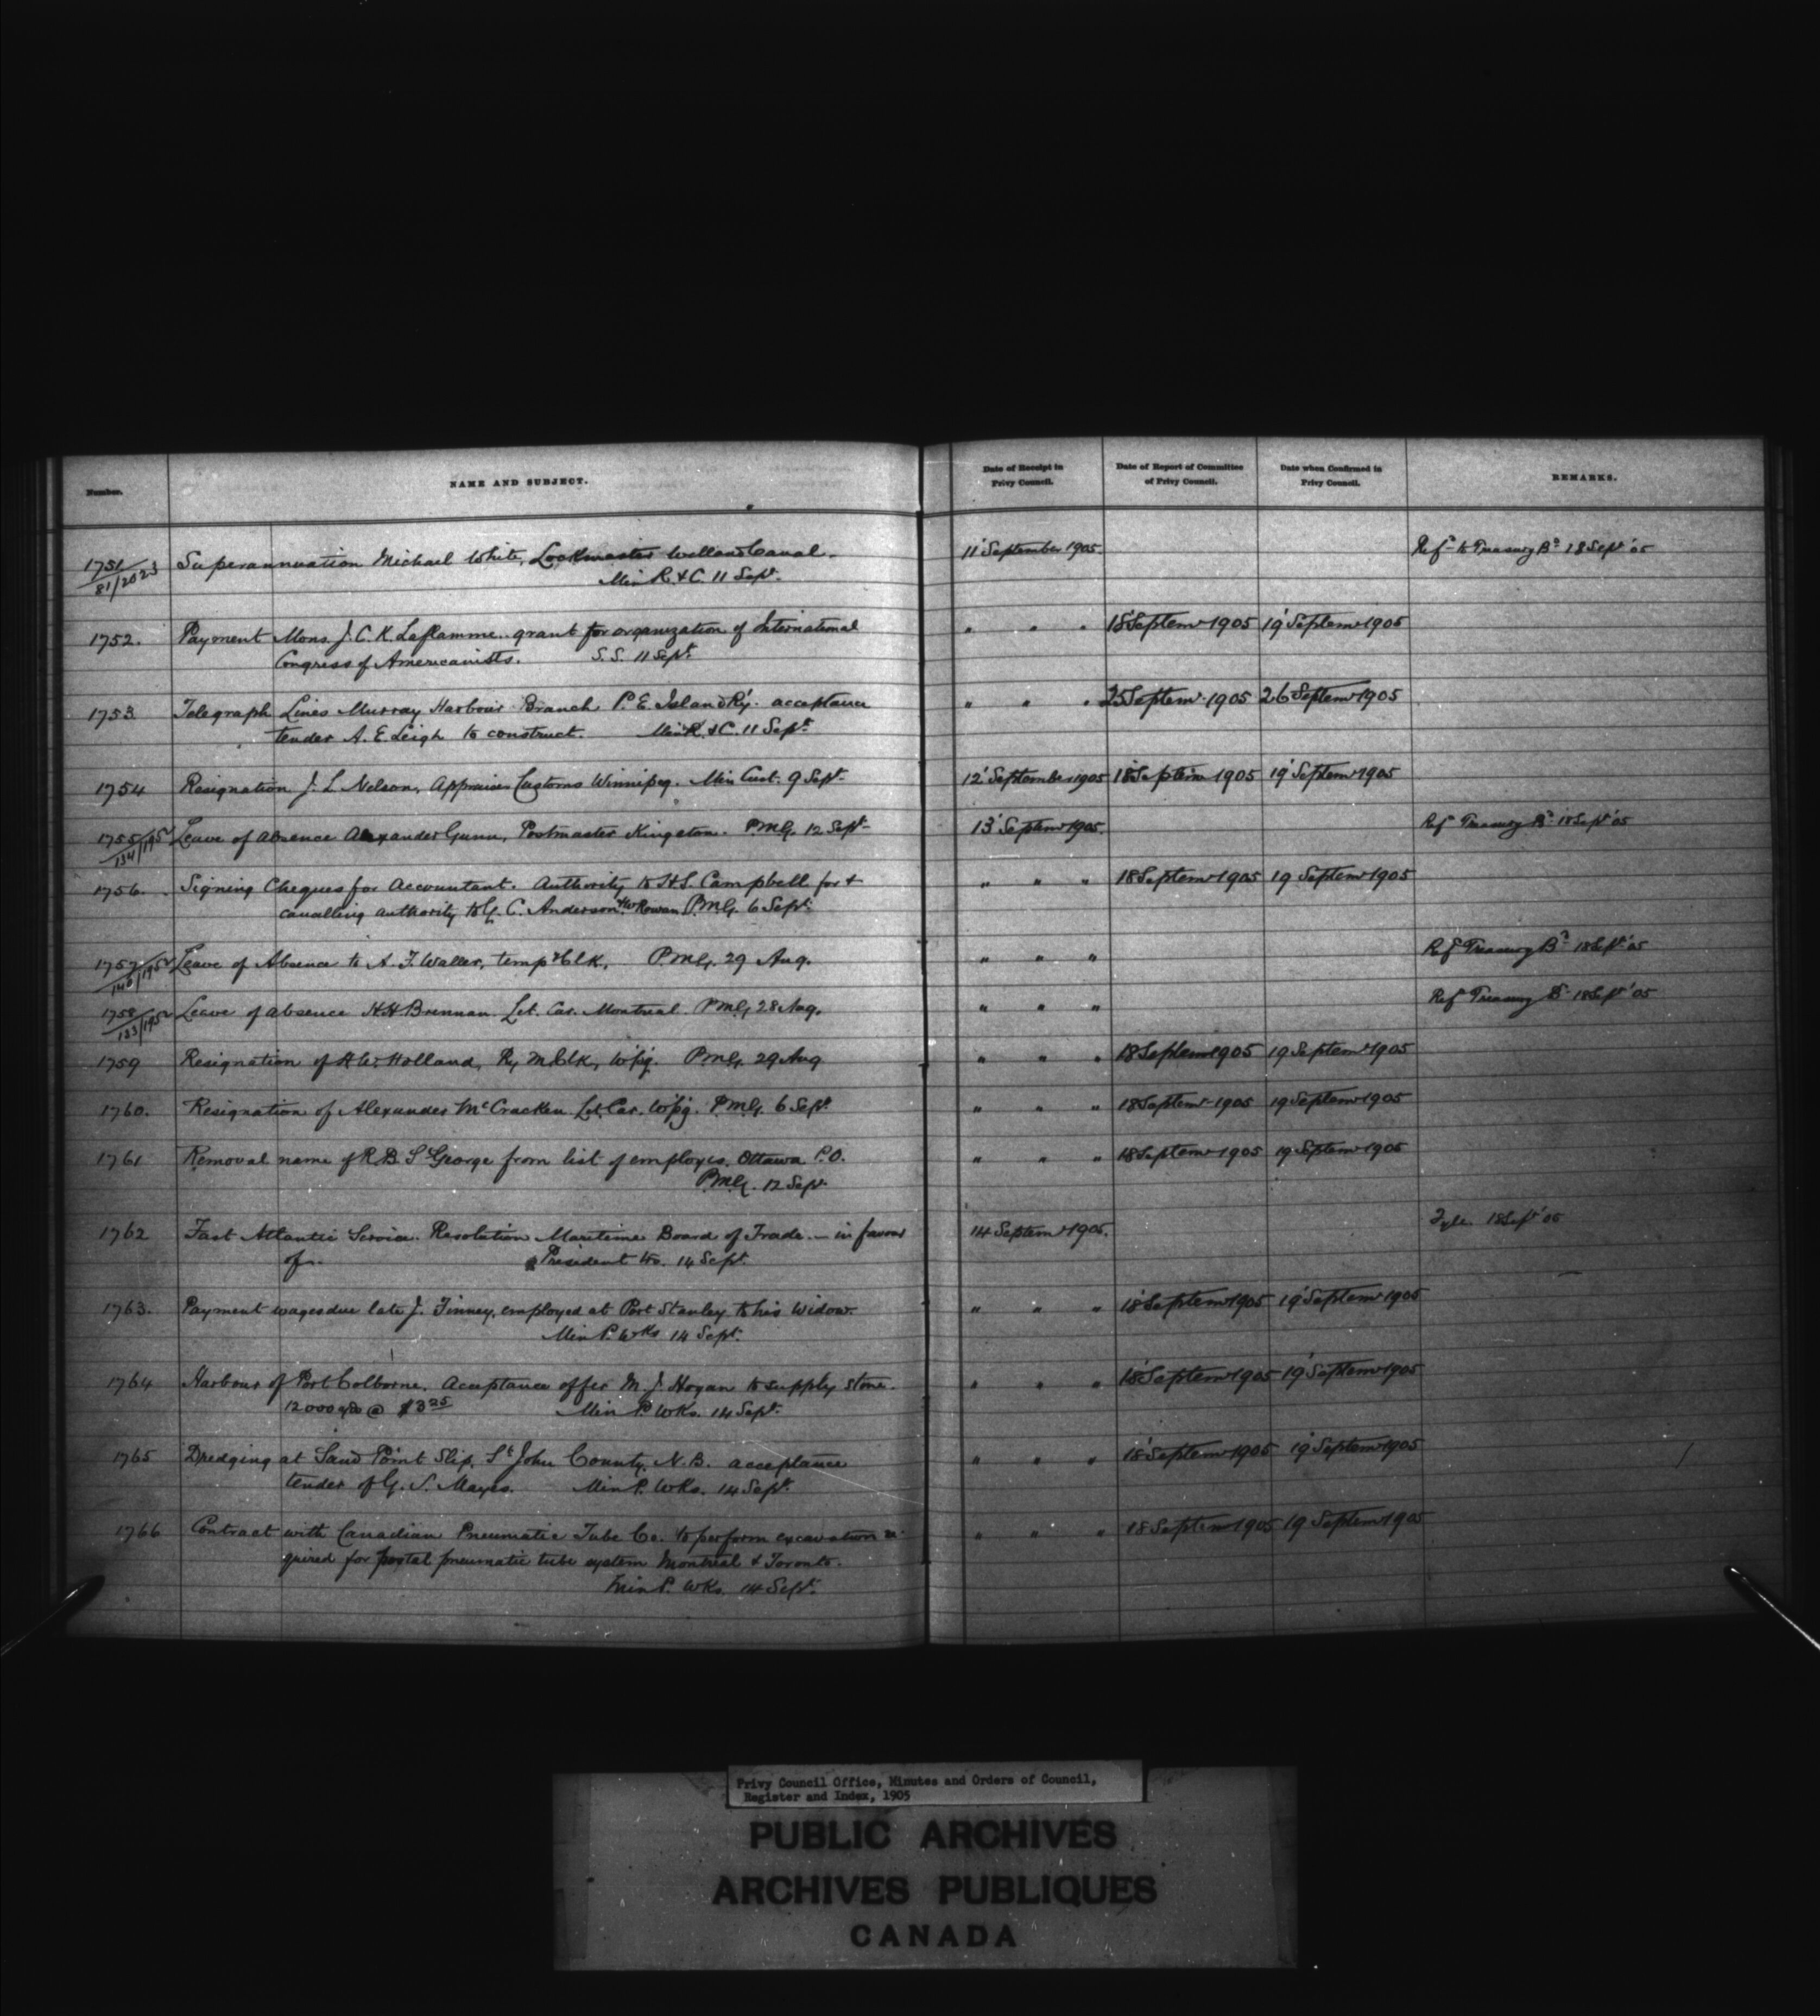 Number.
NAME AND SUBJECT.
Date of Receipt in Privy Council.
Date of Report of Committee of Privy Council.
Date when Confirmed in Privy Council.
REMARKS.
1751 Superannuation Michael White, Lockmaster Welland Canal. 11' September 1905. Ref. to Treasury Bd 18 Sept '05
81/2023 Min R. & C. 11 Sept.
1752. Payment Mons. J. C. K. Laflamme. grant for organization of International " " " 18' Septemr 1905 19' Septemr 1905
Congress of Americanists. S.S. 11 Sept.
1753 Telegraph Lines Murray Harbour Branch P. E. Island Ry. acceptance " " " 25 Septemr 1905 26 Septemr 1905
tender A. E. Leigh to construct. Min R. & C. 11 Sept.
1754 Resignation J. L. Nelson, Appraiser Customs Winnipeg. Min Cust. 9 Sept. 12' September 1905 18' Septemr 1905 19' Septemr 1905
1755 Leave of absence Alexander Gunn, Postmaster Kingston. PMG. 12 Sept. 13' Septemr 1905. Ref Treasury Bd 18 Sept '05
134/195
1756. Signing Cheques for Accountant. Authority to H S. Campbell for & " " " 18 Septemr 1905 19 Septemr 1905
cancelling authority to G. C. Anderson & W Rowan P.M.G. 6 Sept.
1757 Leave of Absence to A. F. Waller, tempy Clk, P.M.G. 29 Aug. " " " Ref Treasury Bd 18 Sept. '05
1758 Leave of absence H H Brennan Let. Car. Montreal. PMG, 28 Aug. " " " Ref Treasury Bd. 18 Sept '05
133/195
1759 Resignation of A. W. Holland, Ry M. Clk, W'pg. P.M.G. 29 Aug " " " 18 Septemr 1905 19 Septemr 1905
1760. Resignation of Alexander McCracken Let. Car. W'pg. P.M.G. 6 Sept. " " " 18 Septemr 1905 19 Septemr 1905
1761 Removal name of R B St George from list of employes, Ottawa P.O. " " " 18 Septemr 1905 19 Septemr 1905
P.M.G. 12 Sept.
1762 Fast Atlantic Service. Resolution Maritime Board of Trade. — in favour 14 Septemr 1905. Fyle. 18 Sept '05
of. President 14 Sept.
1763. Payment wages due late J. Finney, employed at Port Stanley to his widow. " " " 18' Septemr 1905 19' Septemr 1905
Min P. Wks 14 Sept.
1764 Harbour of Port Colborne. Acceptance offer M. J. Hogan to supply stone. " " " 18' Septemr 1905 19' Septemr 1905
12000 yds @ $3 25 Min P. Wks. 14 Sept.
1765 Dredging at Sand Point Slip, St. John County, N.B. acceptance " " " 18' Septemr 1905 19' Septemr 1905
tender of G. S. Mayes. Min P. Wks. 14 Sept.
1766 Contract with Canadian Pneumatic Tube Co. to perform excavation re- " " " 18 Septemr 1905 19 Septemr 1905
quired for postal pneumatic tube system Montreal & Toronto.
Min P. Wks. 14 Sept.
Privy Council Office, Minutes and Orders of Council,
Register and Index, 1905
PUBLIC ARCHIVES
ARCHIVES PUBLIQUES
CANADA